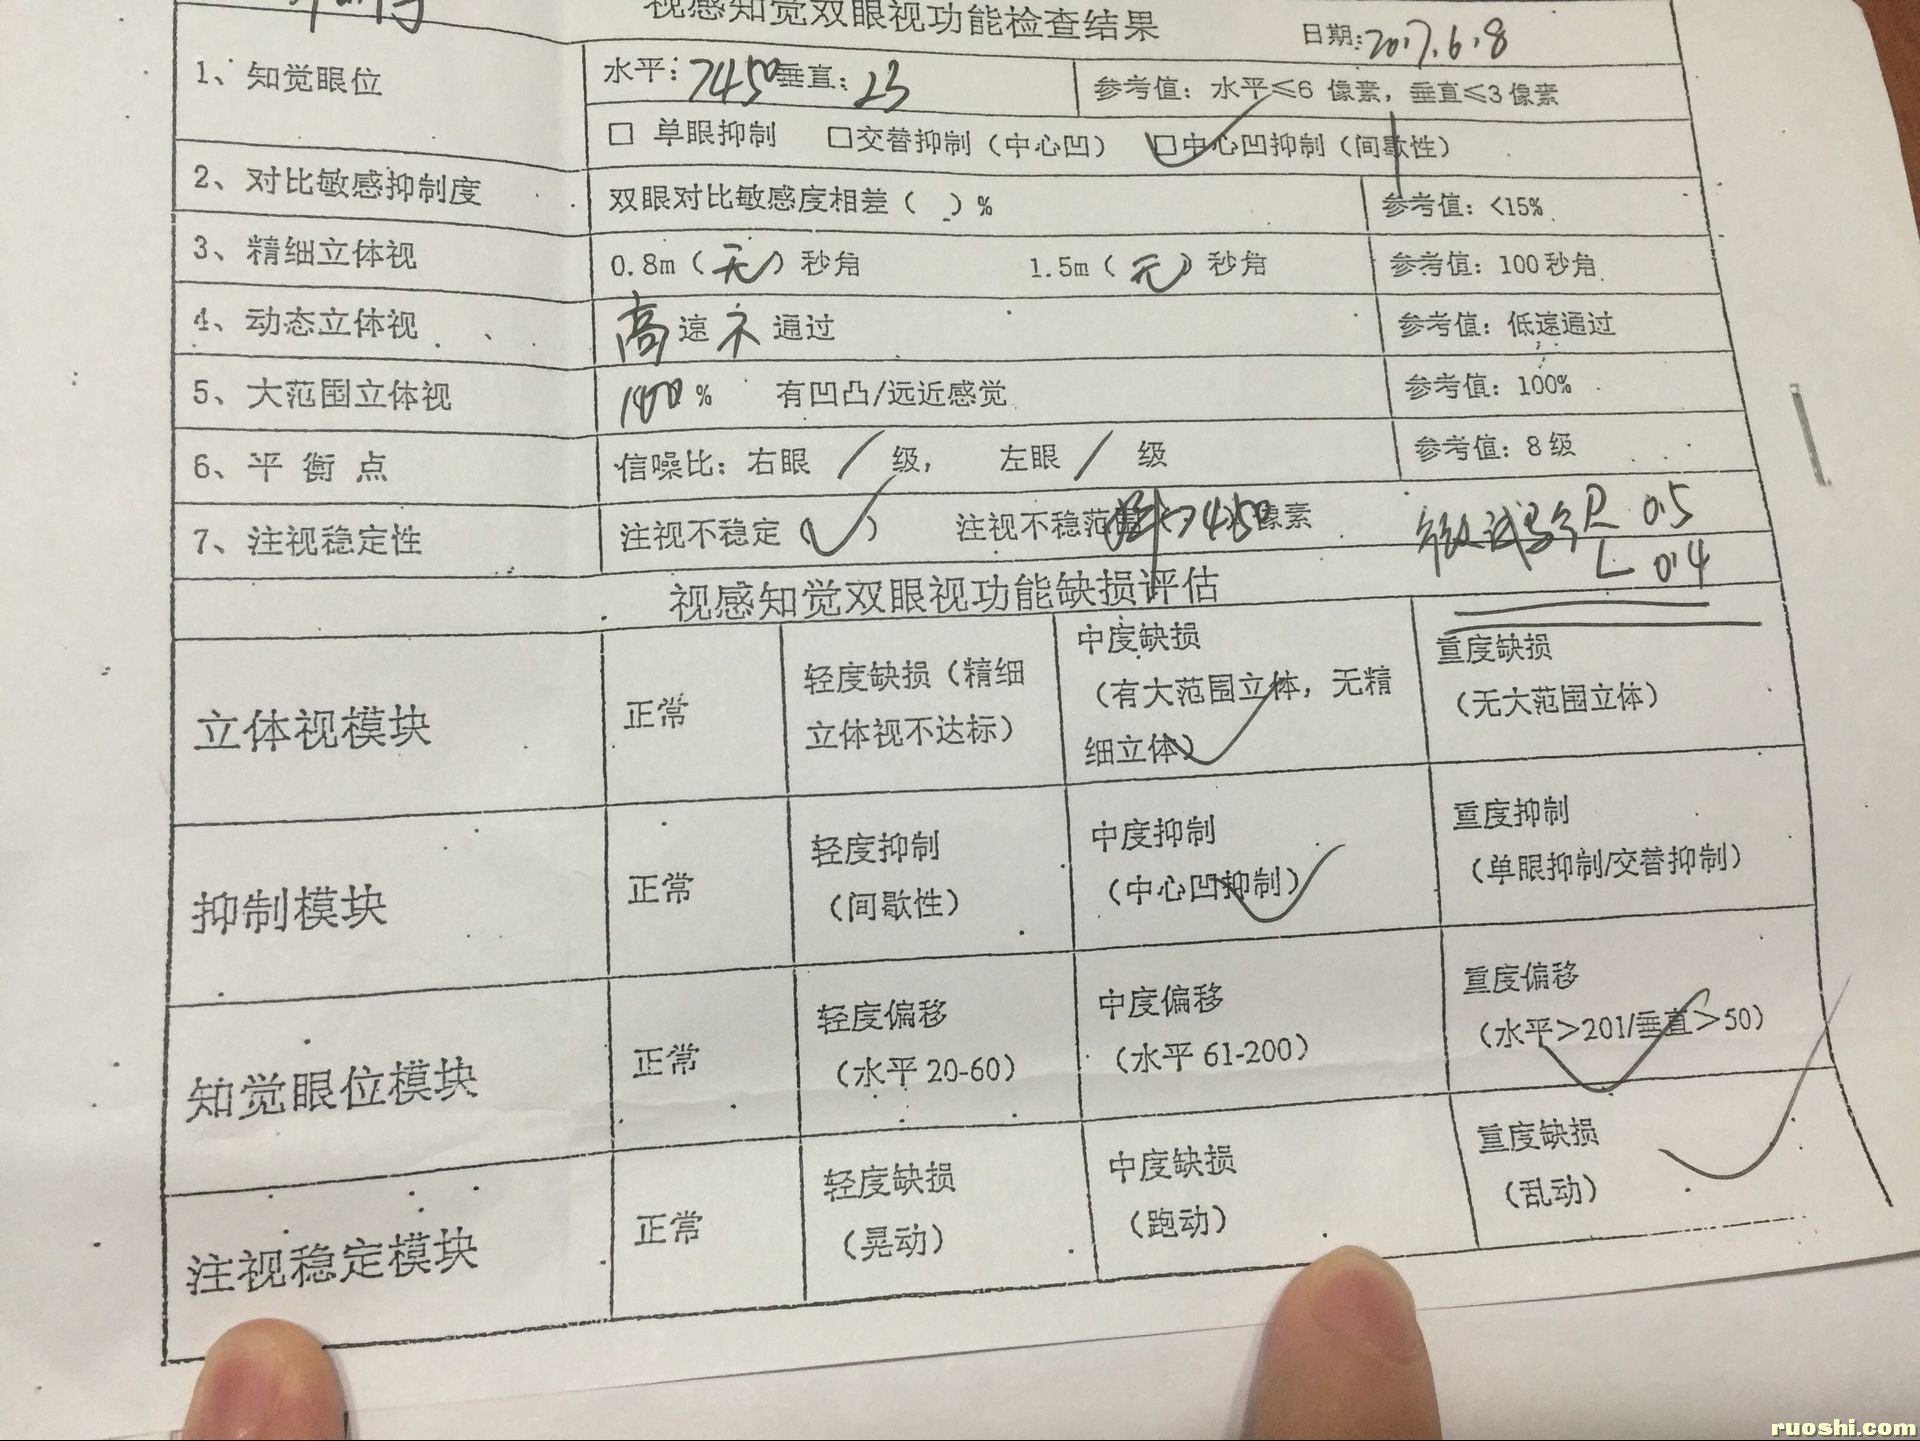 视感知觉双眼视功能检查结果 日期:2017.6.8
1、知觉眼位 水平: 7450 垂直: 23 参考值: 水平≤6 像素, 垂直≤3 像素
□ 单眼抑制 □交替抑制（中心凹） □中心凹抑制（间歇性）
2、对比敏感抑制度 双眼对比敏感度相差（ ）% 参考值: <15%
3、精细立体视 0.8m（无）秒角 1.5m（无）秒角 参考值: 100 秒角
4、动态立体视 高速不通过 参考值: 低速通过
5、大范围立体视 100% 有凹凸/远近感觉 参考值: 100%
6、平 衡 点 信噪比: 右眼 / 级, 左眼 / 级 参考值: 8 级
7、注视稳定性 注视不稳定（✓） 注视不稳范围 >450 像素 R 0.5
L 0.4
视感知觉双眼视功能缺损评估
立体视模块 正常 轻度缺损（精细
立体视不达标） 中度缺损
（有大范围立体, 无精
细立体） 重度缺损
（无大范围立体）
抑制模块 正常 轻度抑制
（间歇性） 中度抑制
（中心凹抑制） 重度抑制
（单眼抑制/交替抑制）
知觉眼位模块 正常 轻度偏移
（水平 20-60） 中度偏移
（水平 61-200） 重度偏移
（水平>201/垂直>50）
注视稳定模块 正常 轻度缺损
（晃动） 中度缺损
（跑动） 重度缺损
（乱动）
ruoshi.com